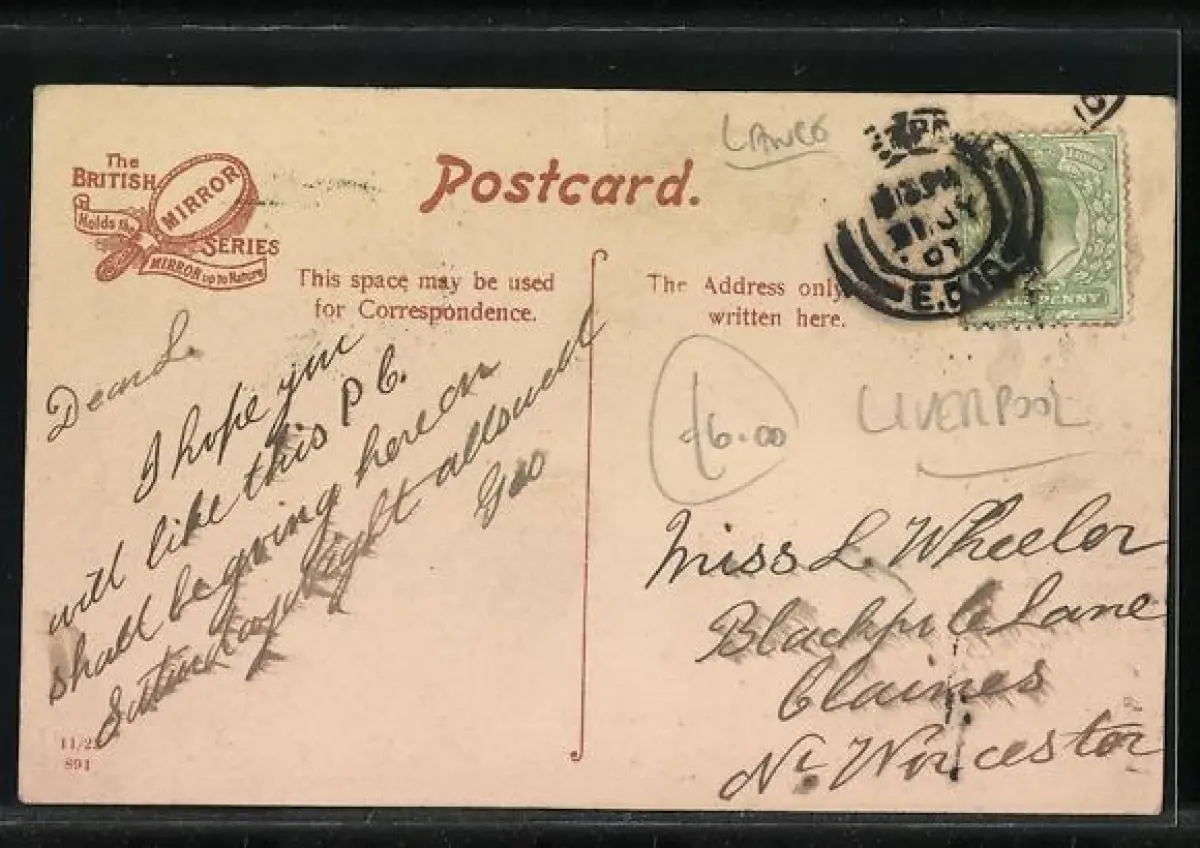 The
BRITISH
MIRROR
SERIES
Holds the
MIRROR up to Nature
Postcard.
LANCS
This space may be used
for Correspondence.
The Address only
written here.
PM
JY
07
PENNY
£6.00
LIVERPOOL
Dear L.
I hope you
will like this P C.
shall be going here on
Saturday night all
Geo
Miss L. Wheeler
Lane
Claines
Nr. Worcester
11/2
891